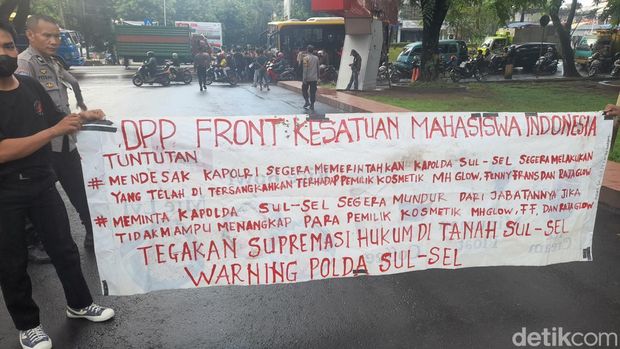 DPP. FRONT KESATUAN MAHASISWA INDONESIA
TUNTUTAN
# MENDESAK KAPOLRI SEGERA MEMERINTAHKAN KAPOLDA SUL-SEL SEGERA MELAKUKAN
YANG TELAH DI TERSANGKAHKAN TERHADAP PEMILIK KOSMETIK MH GLOW, FENNY FRANS DAN RAJA GLOW
# MEMINTA KAPOLDA SUL-SEL SEGERA MUNDUR DARI JABATANNYA JIKA
TIDAK MAMPU MENANGKAP PARA PEMILIK KOSMETIK MH GLOW, FF, DAN RAJA GLOW
TEGAKAN SUPREMASI HUKUM DI TANAH SUL-SEL
WARNING POLDA SUL-SEL
detikcom